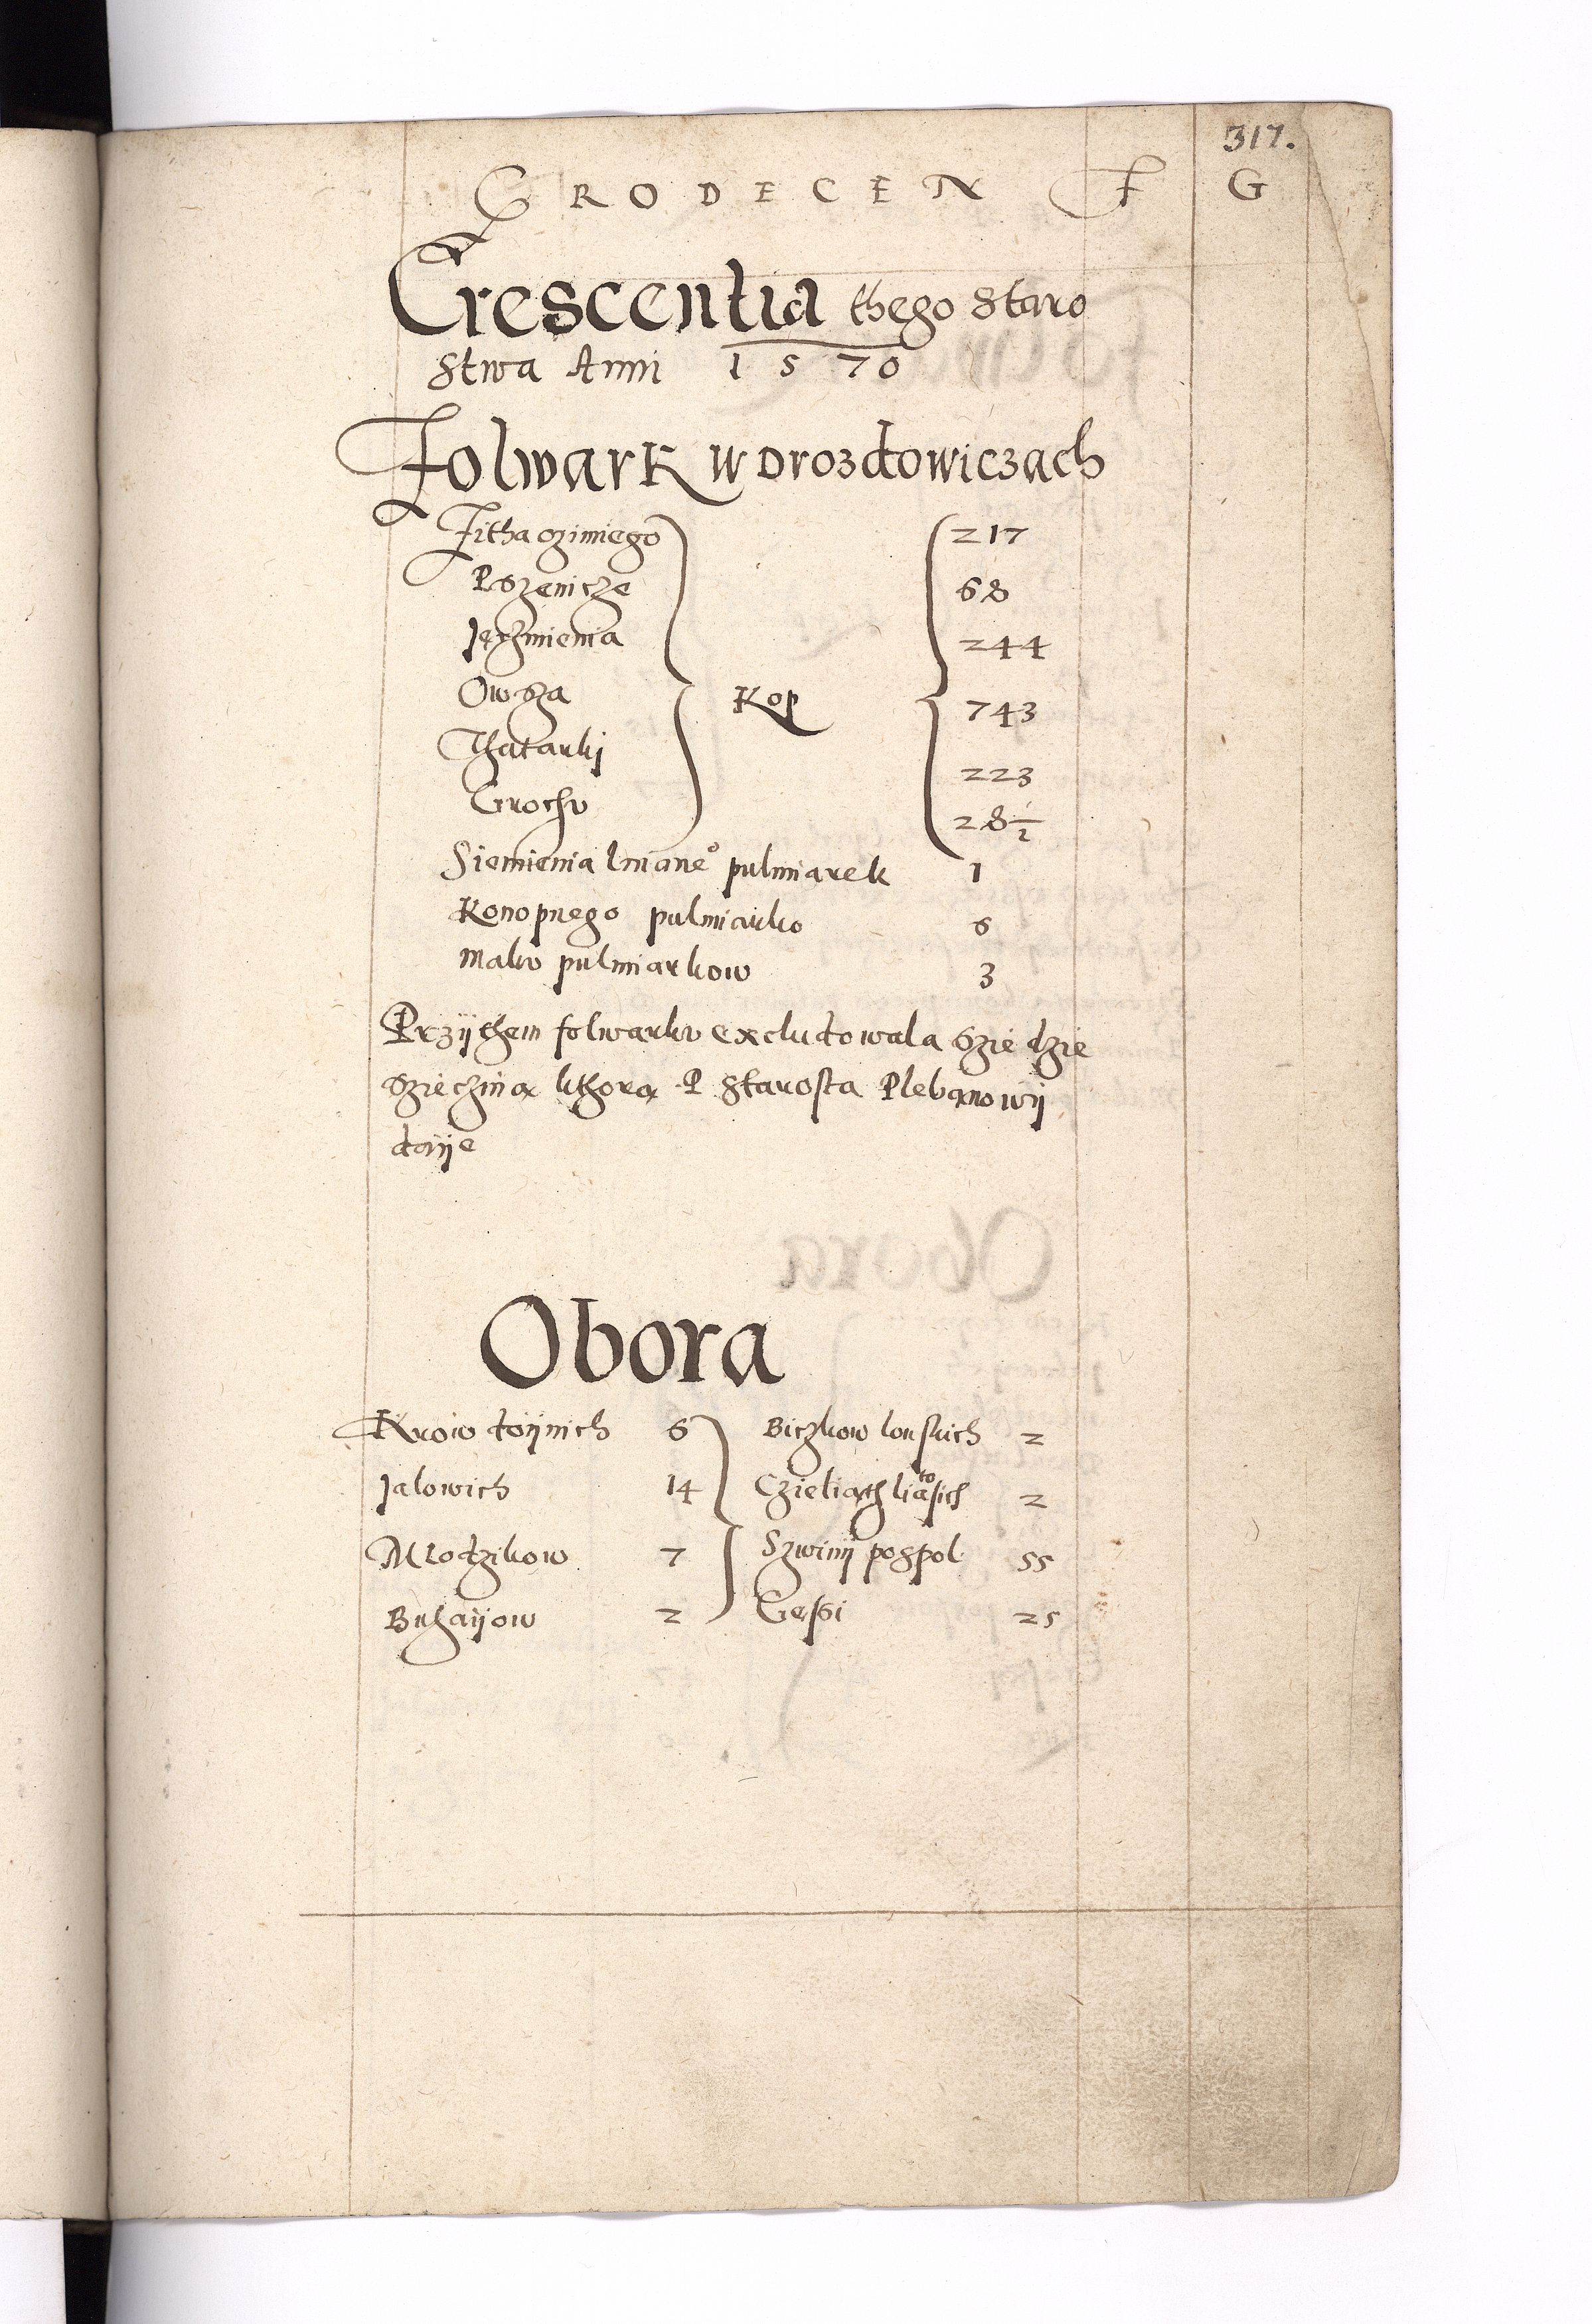 317.
GRODECEN F G
Crescentia thego Staro
Stwa Anni 1570
Folwark w Drozdowiczach
Zitha ozimiego 217
Pszenicze 68
Jęczmienia 244
Owsza Kop 743
Thatarki 223
Grochu 28 1/2
Siemienia lniane° pulmiarek 1
Konopnego pulmiarko 6
Maku pulmiarkow 3
Przÿthem folwarku excludowala szie dzie
szięczina kthorą P Starosta Plebanowÿ
daÿe
Obora
Krow doÿnich 6 Biczkow lonskich 2
Jalowich 14 Czieliąth liatosich 2
Mlodzikow 7 Szwinÿ pospol. 55
Buhaÿow 2 Gęsi 25